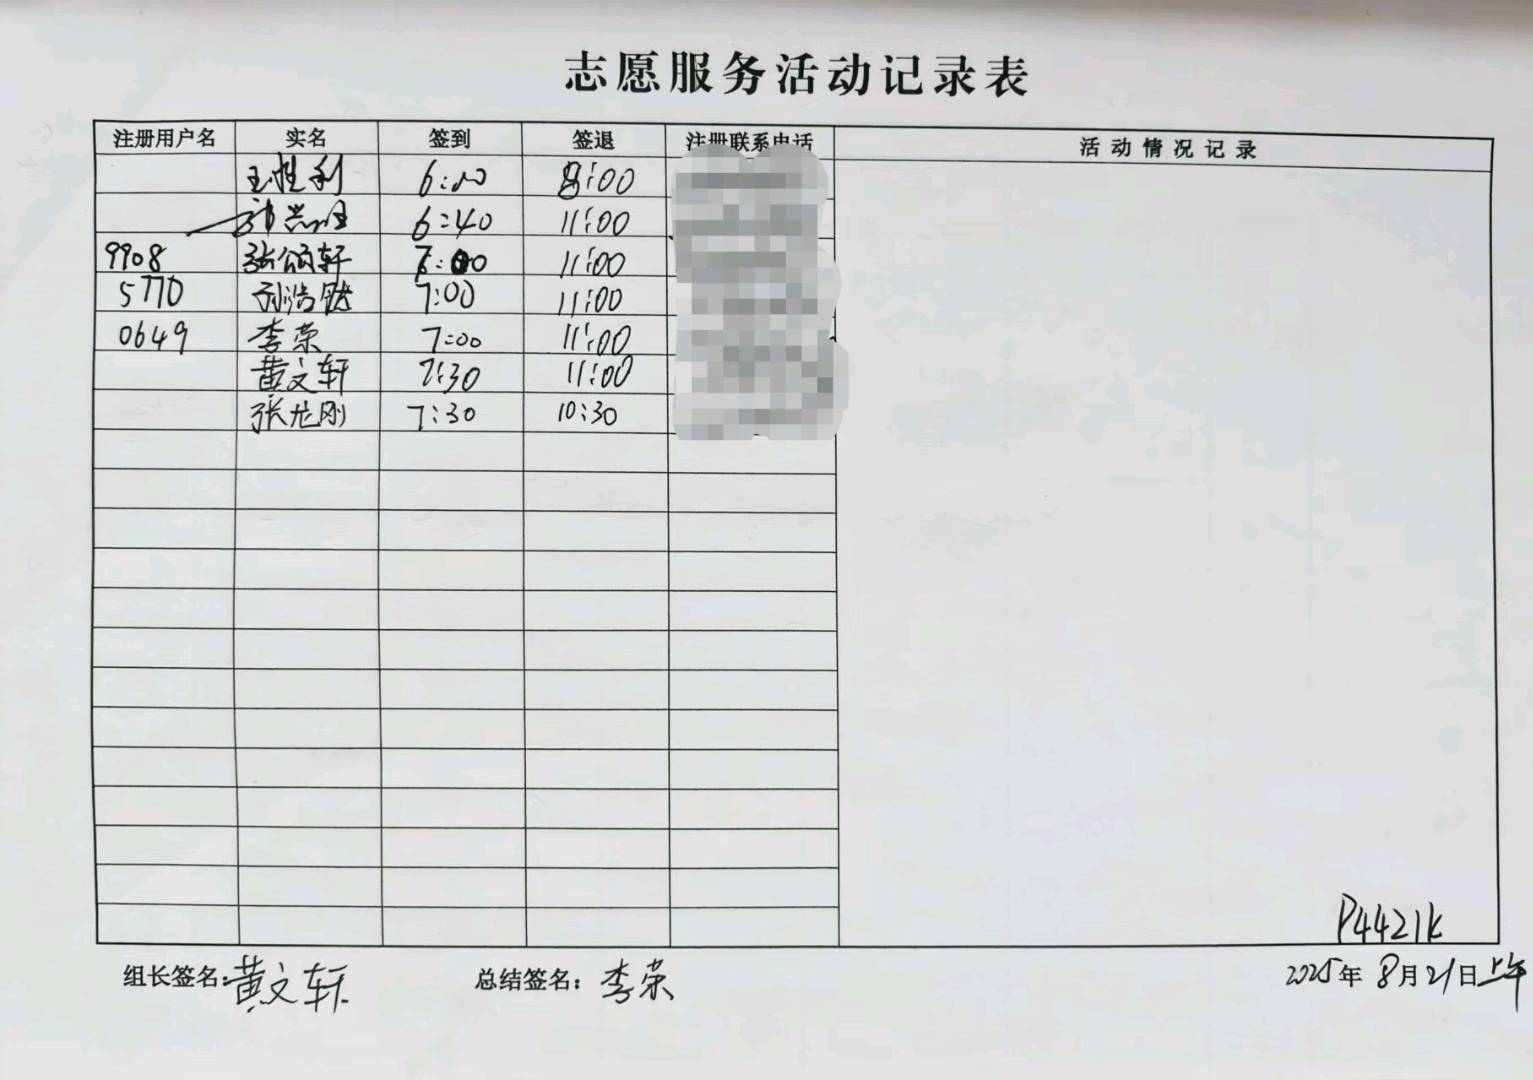 志愿服务活动记录表
注册用户名 实名 签到 签退 注册联系电话 活动情况记录
王胜利 6:00 8:00
6:40 11:00
9908 张颂轩 7:00 11:00
5770 孙浩 7:00 11:00
0649 李荣 7:00 11:00
黄文轩 7:30 11:00
张龙刚 7:30 10:30
P4421k
组长签名:黄文轩 总结签名:李荣 2025年8月21日上午